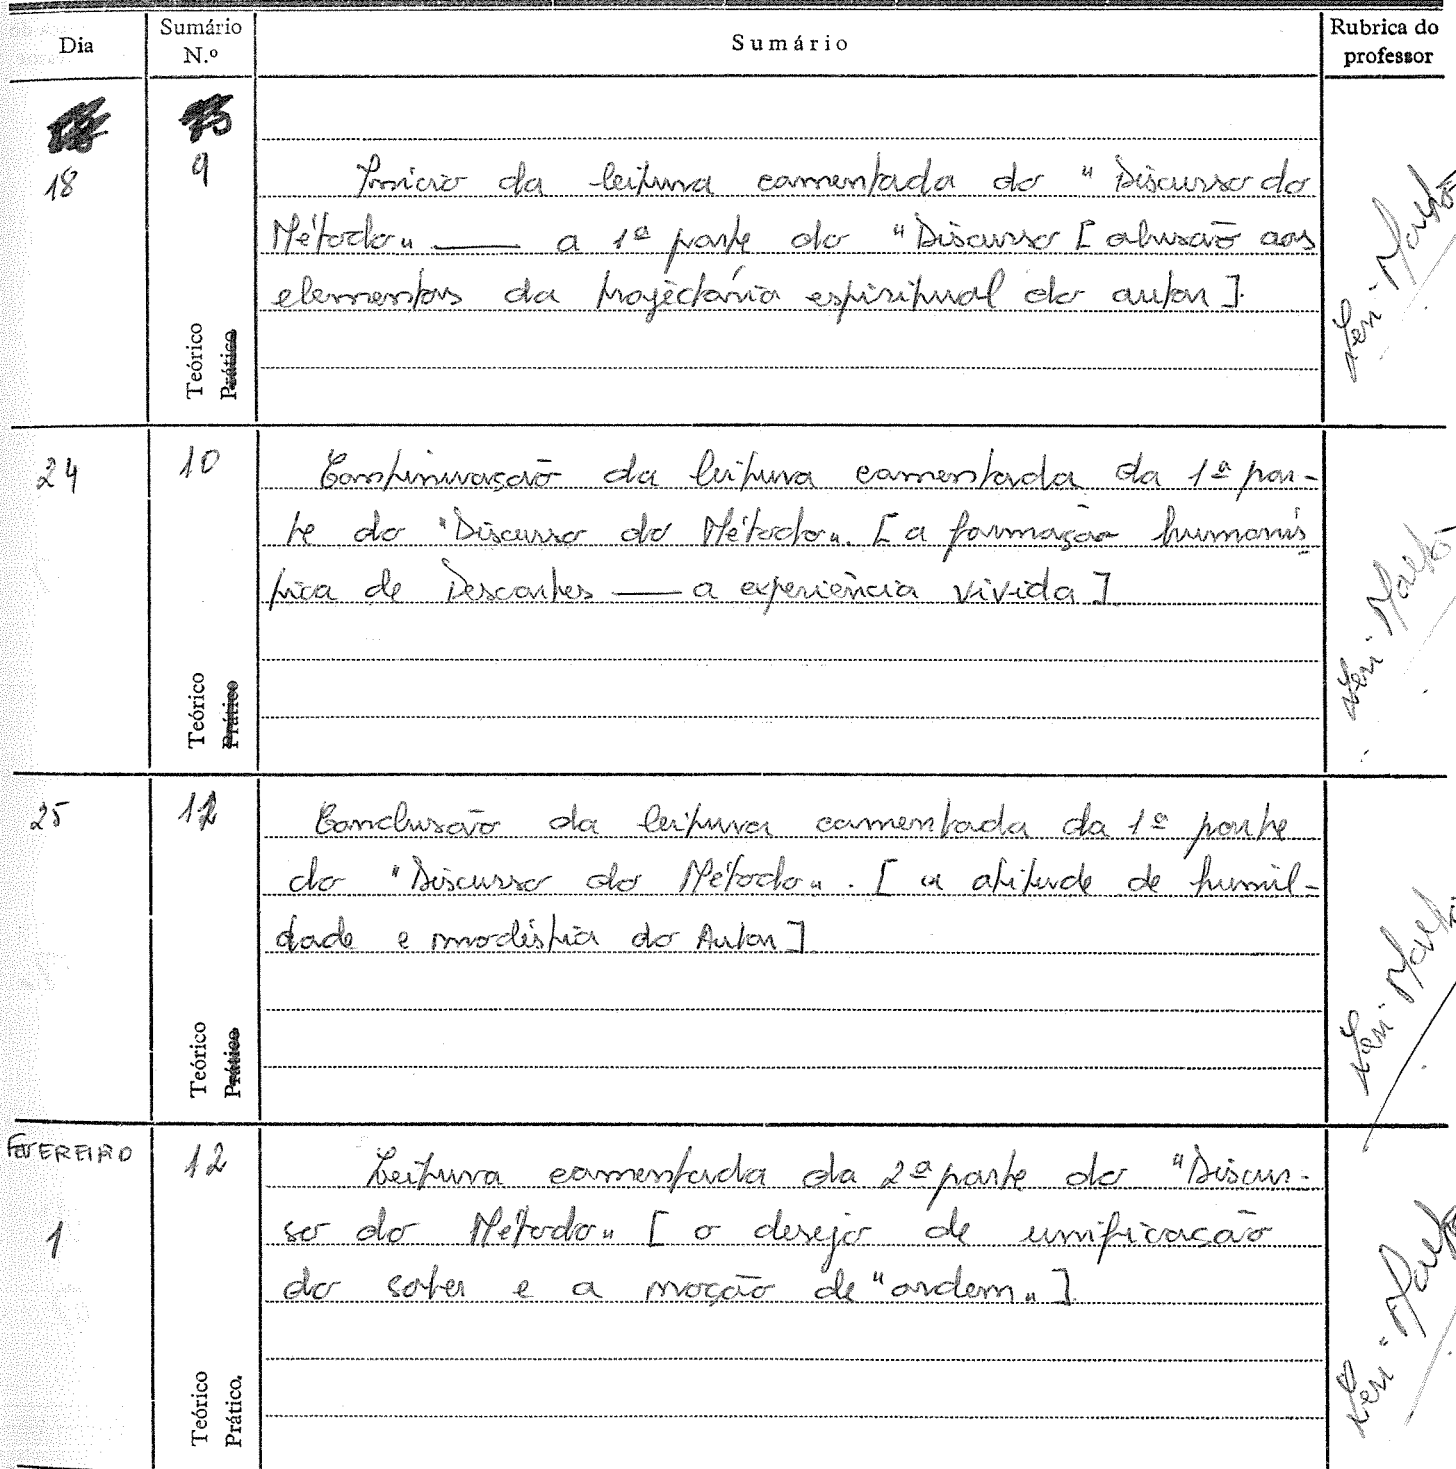 Dia Sumário N.º Sumário Rubrica do professor
18 9 Início da leitura comentada do "Discurso do
Método" — a 1ª parte do "Discurso [alusão aos
elementos da trajectória espiritual do autor].
Teórico
Prático
24 10 Continuação da leitura comentada da 1ª par-
te do "Discurso do Método". [a formação humanís
tica de Descartes — a experiência vivida]
Teórico
Prático
25 Conclusão da leitura comentada da 1ª parte
do "Discurso do Método". [a atitude de humil-
dade e modéstia do Autor]
Teórico
Prático
FEVEREIRO
1 12 Leitura comentada da 2ª parte do "Discur-
so do Método" [o desejo de unificação
do saber e a noção de "ordem"]
Teórico
Prático.